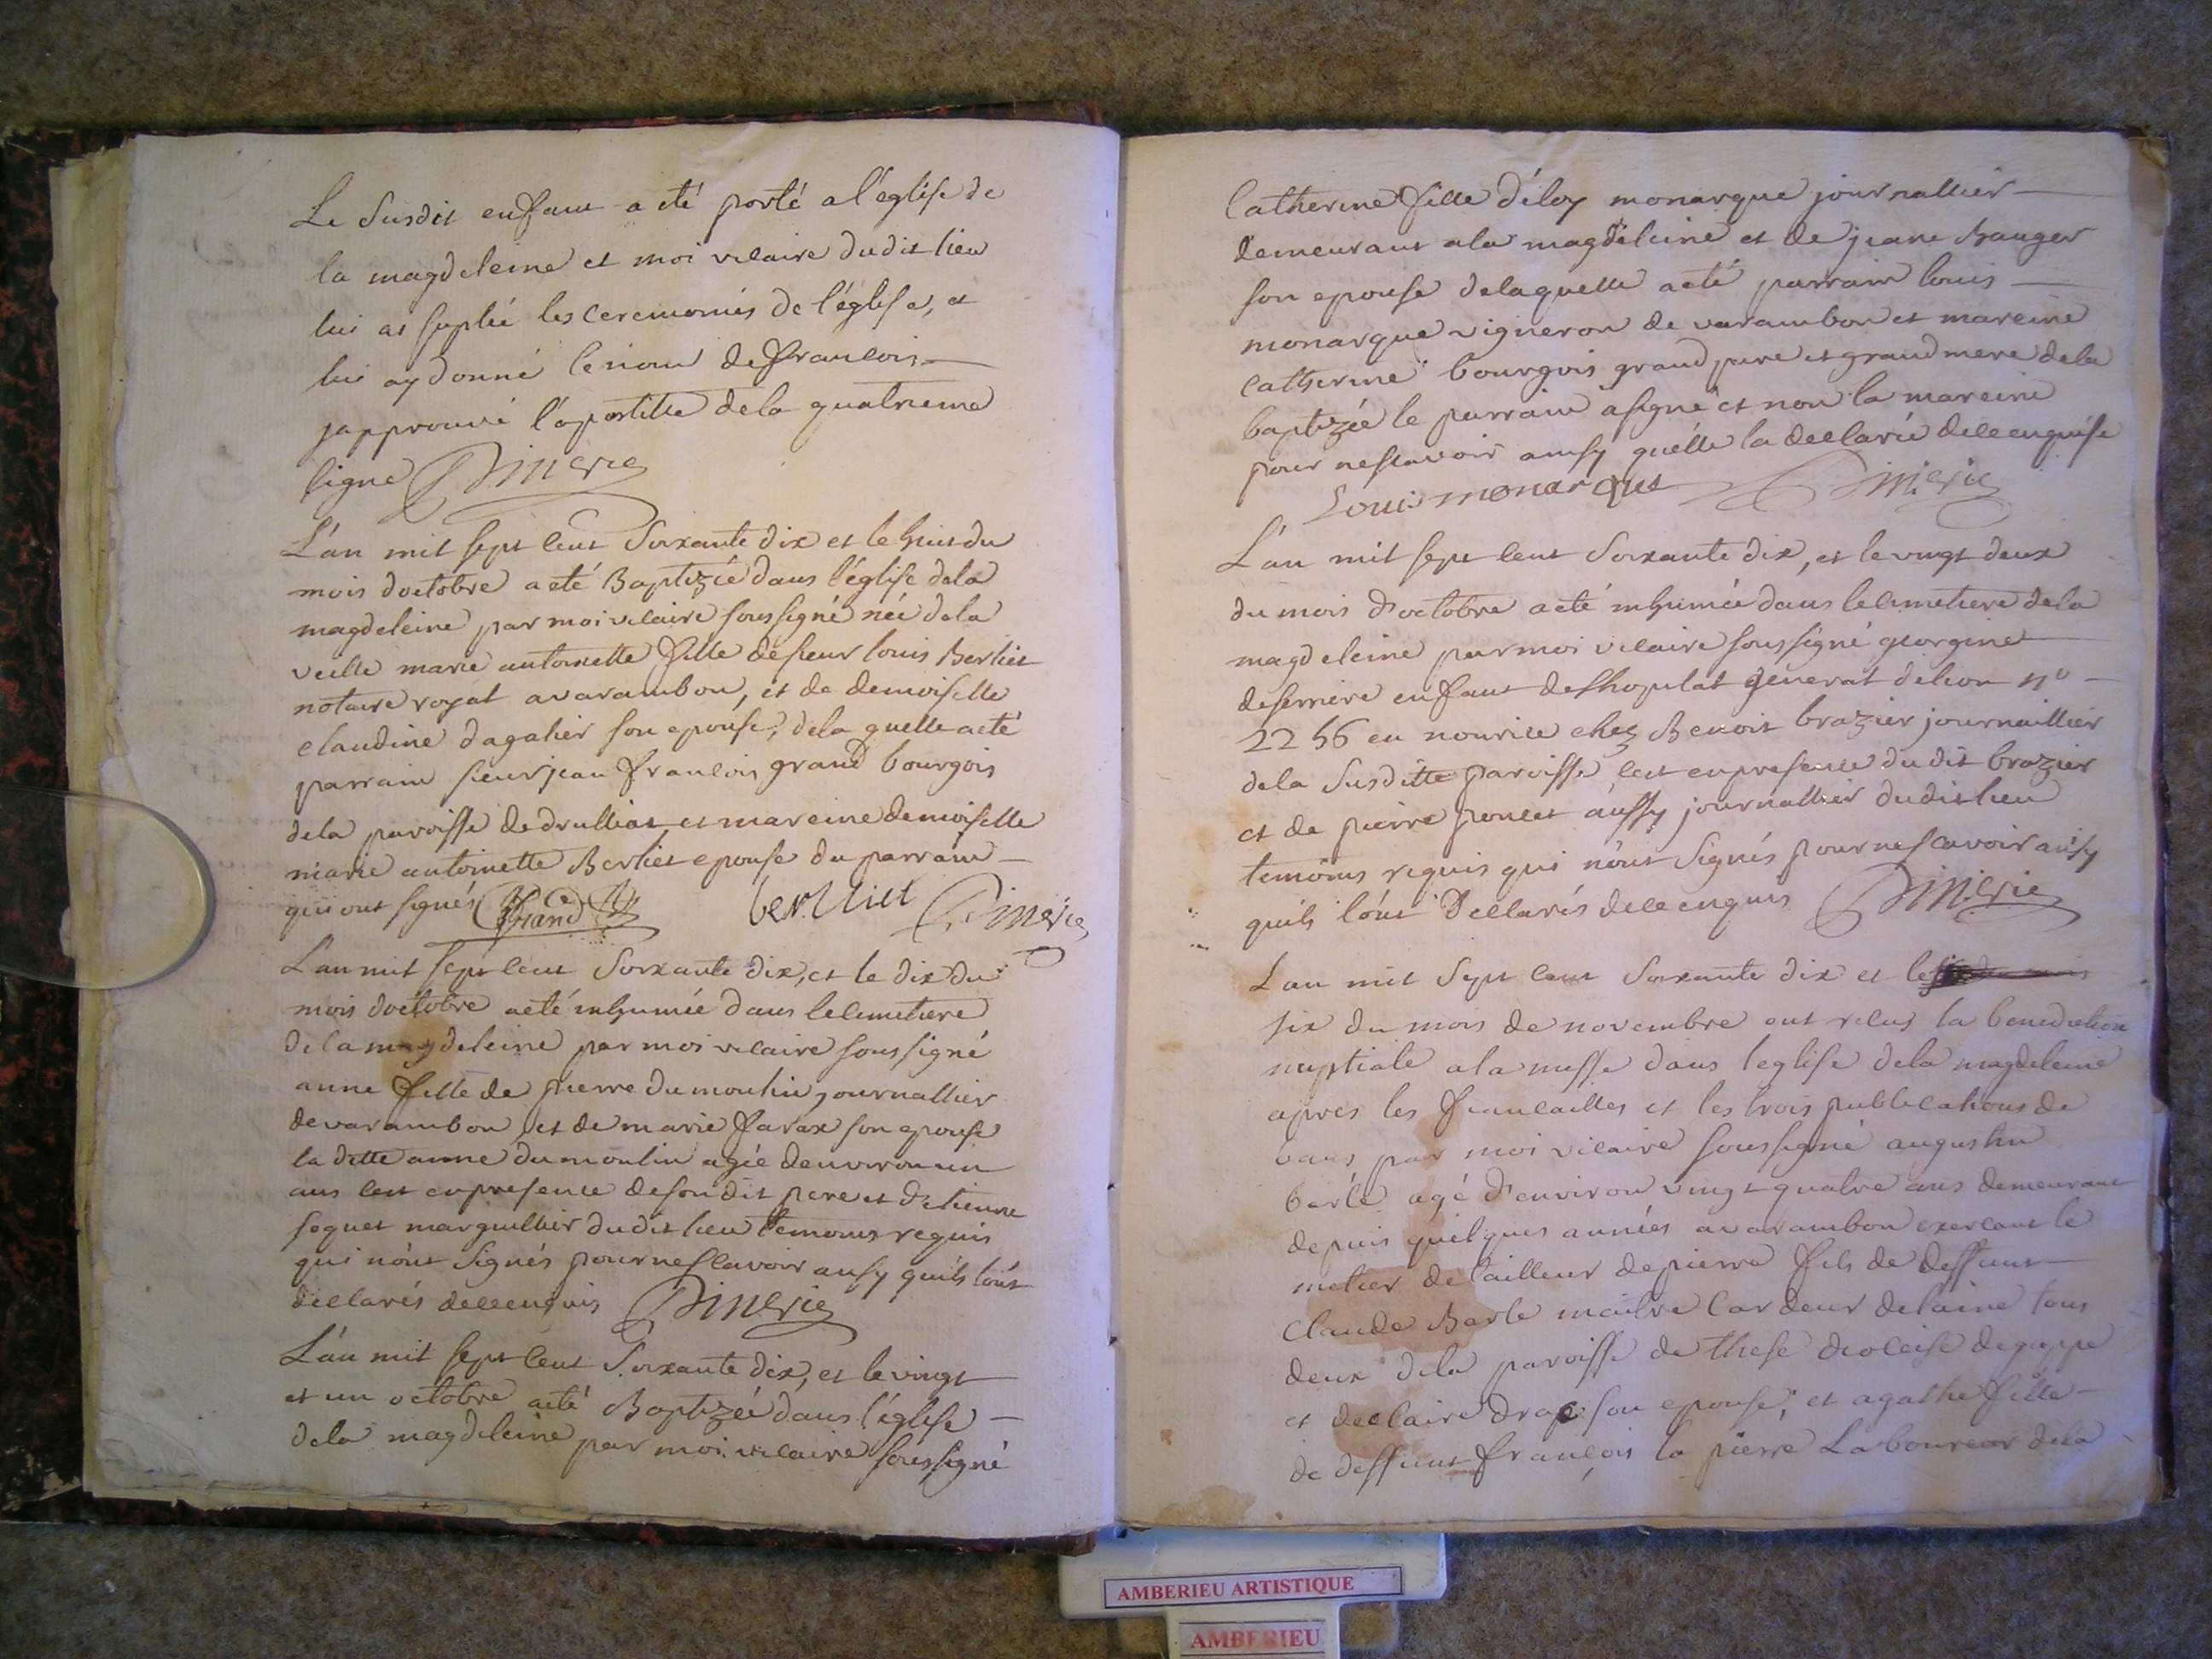 Le susdit enfant a eté porté a l'eglise de
la magdeleine et moi vicaire dudit lieu
lui ai suplée les ceremonies de l'église, et
lui ay donné le nom de francois —
japprouve l'apostille dela quatrieme
ligne
L'an mil sept cent soixante dix et le huit du
mois doctobre a eté Baptizée dans l'église dela
magdeleine par moi vicaire soussigné née dela
veille marie antoinette fille de sieur louis Berliet
notaire royal a varambon, et de demoiselle
claudine dagalier son epouse, dela quelle a eté
parrain sieur jean francois grand bourgois
dela paroisse de druilliat et mareine demoiselle
marie antoinette Berliet epouse du parrain —
qui ont signés Grand berlliet
L'an mil sept cent soixante dix, et le dix du
mois doctobre a eté inhumée dans le cimetiere
dela magdeleine par moi vicaire soussigné
anne fille de pierre dumoulin journallier
de varambon et de marie farax son epouse
la ditte anne dumoulin agée denviron un
ans cest en presence de son dit pere et d'etienne
foquet marguillier dudit lieu temoins requis
qui n'ont signés pour ne scavoir ainsy quils l'ont
declarés de ce enquis
L'an mil sept cent soixante dix, et le vingt
et un octobre a eté Baptizée dans l'église —
dela magdeleine par moi vicaire soussigné
Catherine fille d'éloy monarque journallier —
demeurant a la magdeleine et de jeane Bauger
son epouse delaquelle a eté parrain louis —
monarque vigneron de varambon et mareine
catherine bourgois grand pere et grand mere dela
baptizée le parrain a signé et non la mareine
pour ne scavoir ainsy qu'elle la declarée de ce enquise
Louis monarque
L'an mil sept cent soixante dix, et le vingt deux
du mois d'octobre a eté inhumée dans le cimetiere dela
magdeleine par moi vicaire soussigné georgine
deserriere enfant de lhopital general de lion n° —
2256 en nourice chez Benoit brazier journaillier
dela susditte paroisse, cest en presence du dit brazier
et de pierre poncet aussy journallier dudit lieu
temoins requis qui n'ont signés pour ne scavoir ainsy
quils l'ont declarés de ce enquis
L'an mil sept cent soixante dix et le
six du mois de novembre ont recus la benediction
nuptiale a la messe dans l'eglise dela magdeleine
apres les fiancailles et les trois publications de
bans par moi vicaire soussigné augustin
barle agé d'environ vingt quatre ans demeurant
depuis quelques années a varambon exercant le
metier de tailleur de pierre fils de deffunt —
Claude Barle maitre Cardeur de laine tous
deux dela paroisse de these diocese de gappe
et de claire drac son epouse, et agathe fille —
de deffunt françois la pierre Laboureur dela
AMBERIEU ARTISTIQUE
AMBERIEU